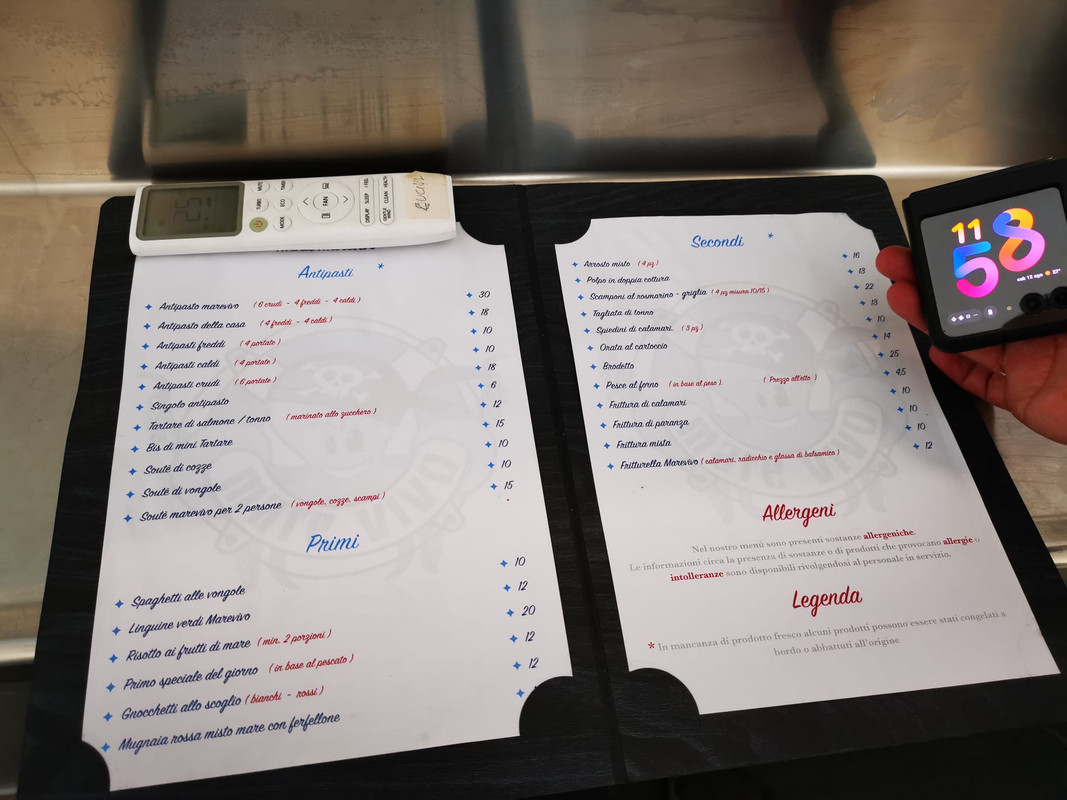 MUTE
TIMER
TURBO
ECO
MODE
FAN
DISPLAY
SLEEP
I FEEL
GENTLE WIND
CLEAN
HEALTH
CUCINA
Antipasti *
Antipasto marevivo ( 6 crudi - 4 freddi - 4 caldi ) 30
Antipasto della casa ( 4 freddi - 4 caldi ) 18
Antipasti freddi ( 4 portate ) 10
Antipasti caldi ( 4 portate ) 10
Antipasti crudi ( 6 portate ) 18
Singolo antipasto 6
Tartare di salmone / tonno ( marinato allo zucchero ) 12
Bis di mini Tartare 15
Soutè di cozze 10
Soutè di vongole 10
Soutè marevivo per 2 persone ( vongole, cozze, scampi ) 15
Primi
Spaghetti alle vongole 10
Linguine verdi Marevivo 12
Risotto ai frutti di mare ( min. 2 porzioni ) 20
Primo speciale del giorno ( in base al pescato ) 12
Gnocchetti allo scoglio ( bianchi - rossi ) 12
Mugnaia rossa misto mare con ferfellone
Secondi *
Arrosto misto ( 4 pz ) 16
Polpo in doppia cottura 13
Scamponi al rosmarino - griglia ( 4 pz misura 10/15 ) 22
Tagliata di tonno 13
Spiedini di calamari ( 3 pz ) 10
Orata al cartoccio 14
Brodetto 25
Pesce al forno ( in base al peso ) ( Prezzo all'etto ) 4,5
Frittura di calamari 10
Frittura di paranza 10
Frittura mista 10
Fritturella Marevivo ( calamari, radicchio e glassa di balsamico ) 12
Allergeni
Nel nostro menù sono presenti sostanze allergeniche.
Le informazioni circa la presenza di sostanze o di prodotti che provocano allergie o
intolleranze sono disponibili rivolgendosi al personale in servizio.
Legenda
* In mancanza di prodotto fresco alcuni prodotti possono essere stati congelati a
bordo o abbattuti all'origine
11
58